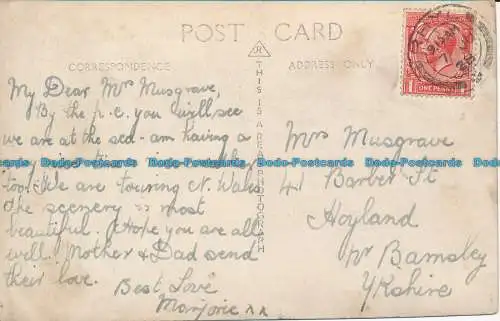 POST CARD
CORRESPONDENCE
ADDRESS ONLY
THIS IS A REAL PHOTOGRAPH
My Dear Mrs Musgrave,
By the p.c. you will see
we are at the sea - am having a
too. We are touring N. Wales
the scenery is most
beautiful. I hope you are all
well. Mother & Dad send
their love.
Best Love
Marjorie xx
Mrs Musgrave
41 Barber St
Hoyland
Nr Barnsley
Ykshire
ONE PENNY
Dodo-Postcards Dodo-Postcards Dodo-Postcards Dodo-Postcards Dodo-Postcards